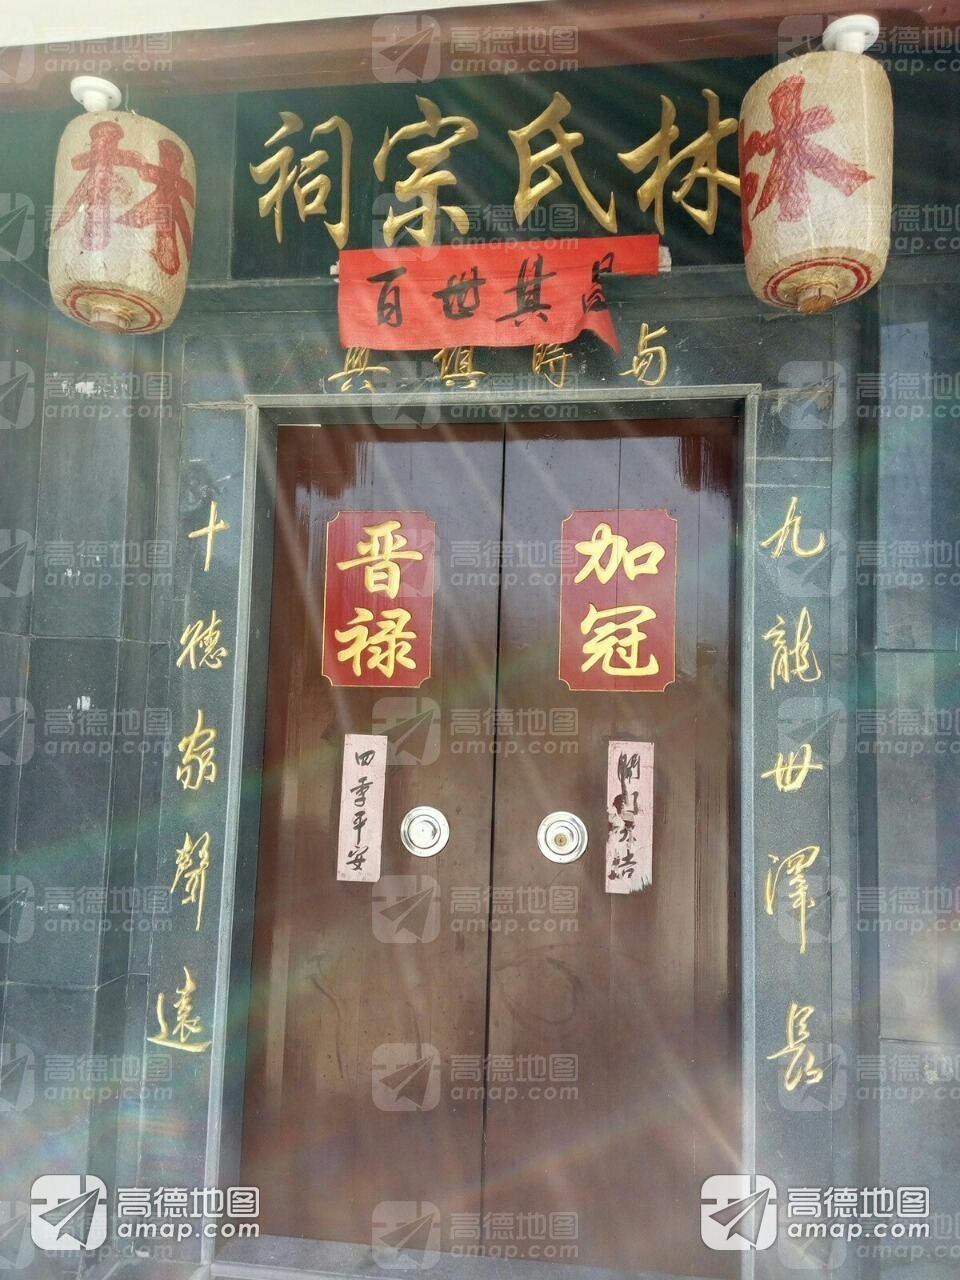 林氏宗祠
林
林
昌其世百
與時俱興
九龍世澤長
十德家聲遠
加冠
晋禄
開门大吉
四季平安
高德地图
amap.com
高德地图
amap.com